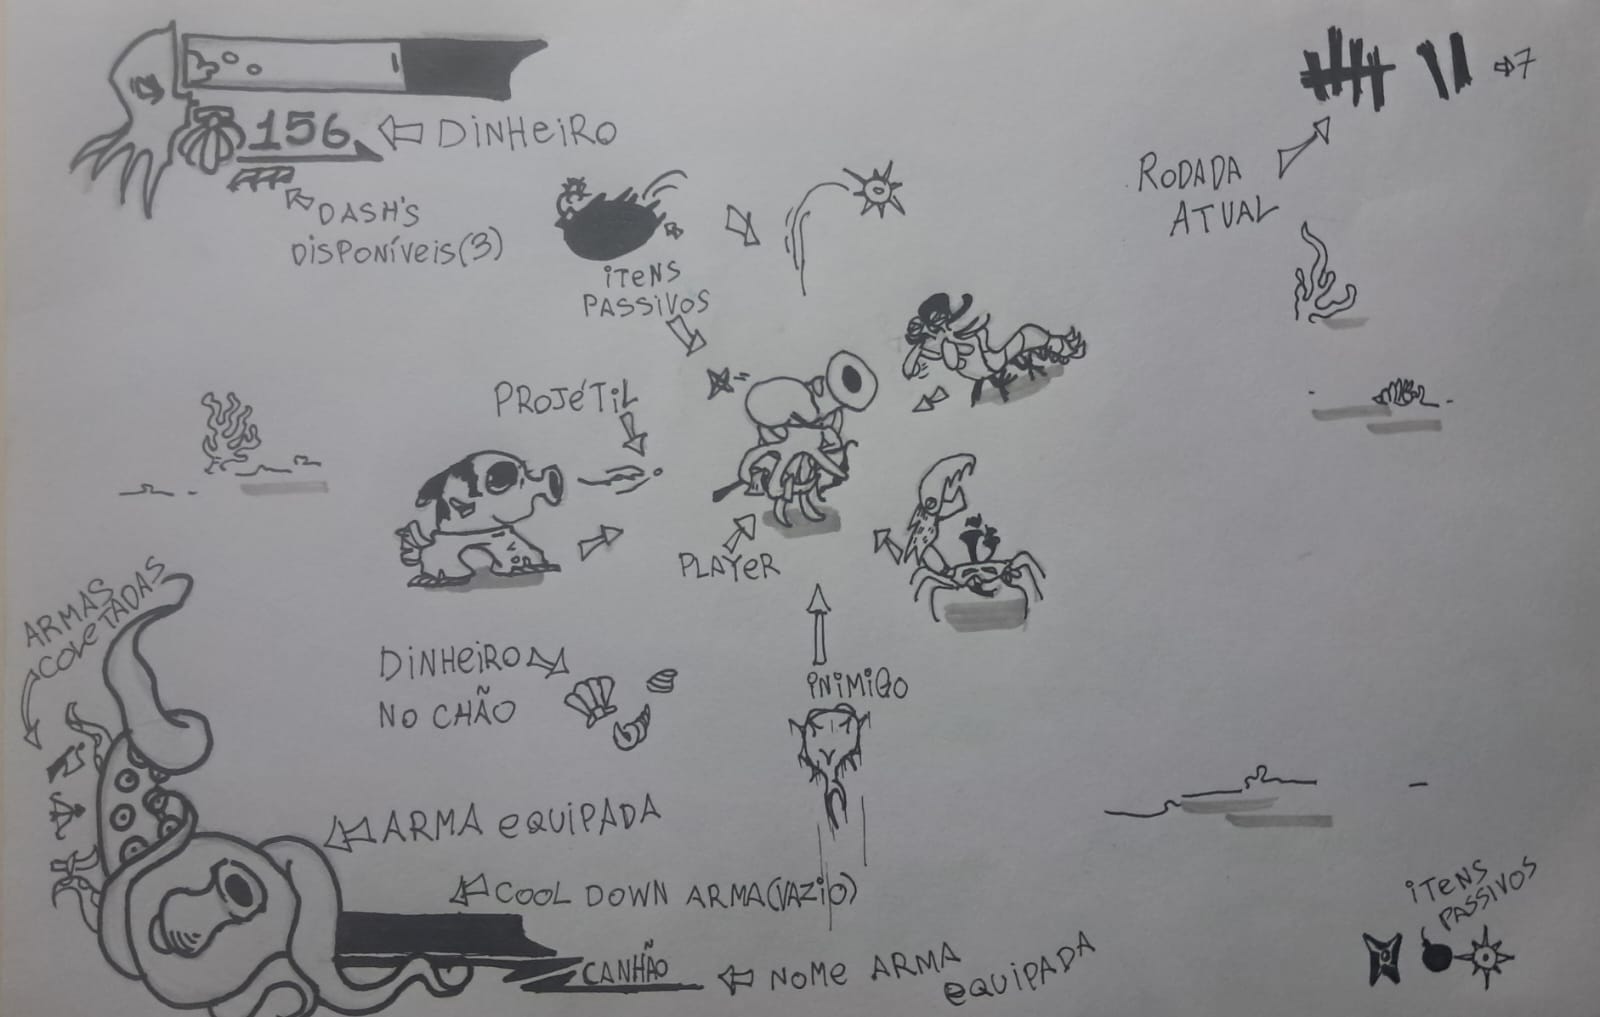 156
DINHEIRO
DASH'S
DISPONÍVEIS(3)
7
RODADA
ATUAL
ITENS
PASSIVOS
PROJÉTIL
PLAYER
ARMAS
COLETADAS
DINHEIRO
NO CHÃO
INIMIGO
ARMA EQUIPADA
COOL DOWN ARMA(VAZIO)
CANHÃO
NOME ARMA
EQUIPADA
ITENS
PASSIVOS